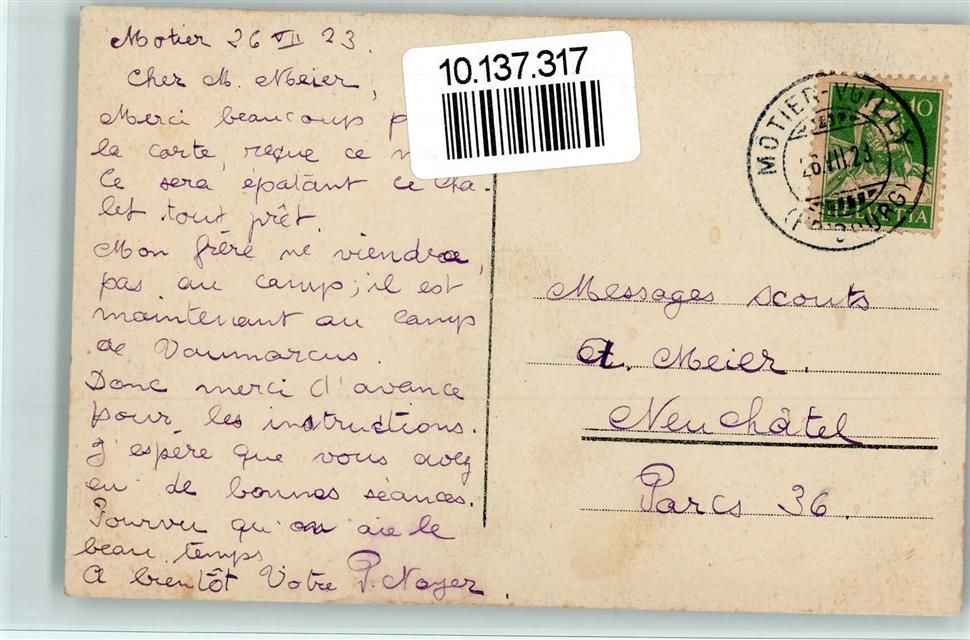 Motier 26 VII 23.
Cher M. Meier,
Merci beaucoup
la carte, reçue ce
Ce sera épatant ce cha-
let tout prêt.
Mon frère ne viendra
pas au camp; il est
maintenant au camp
de Vaumarcus.
Donc merci d'avance
pour les instructions.
J'espère que vous avez
eu de bonnes séances.
Pourvu qu'on aie le
beau temps
A bientôt Votre P. Noyer.
10.137.317
MOTIER-VULLY
26.VII.23
(FRIBOURG)
10
HELVETIA
Messages scouts
A. Meier.
Neuchâtel
Parcs 36.